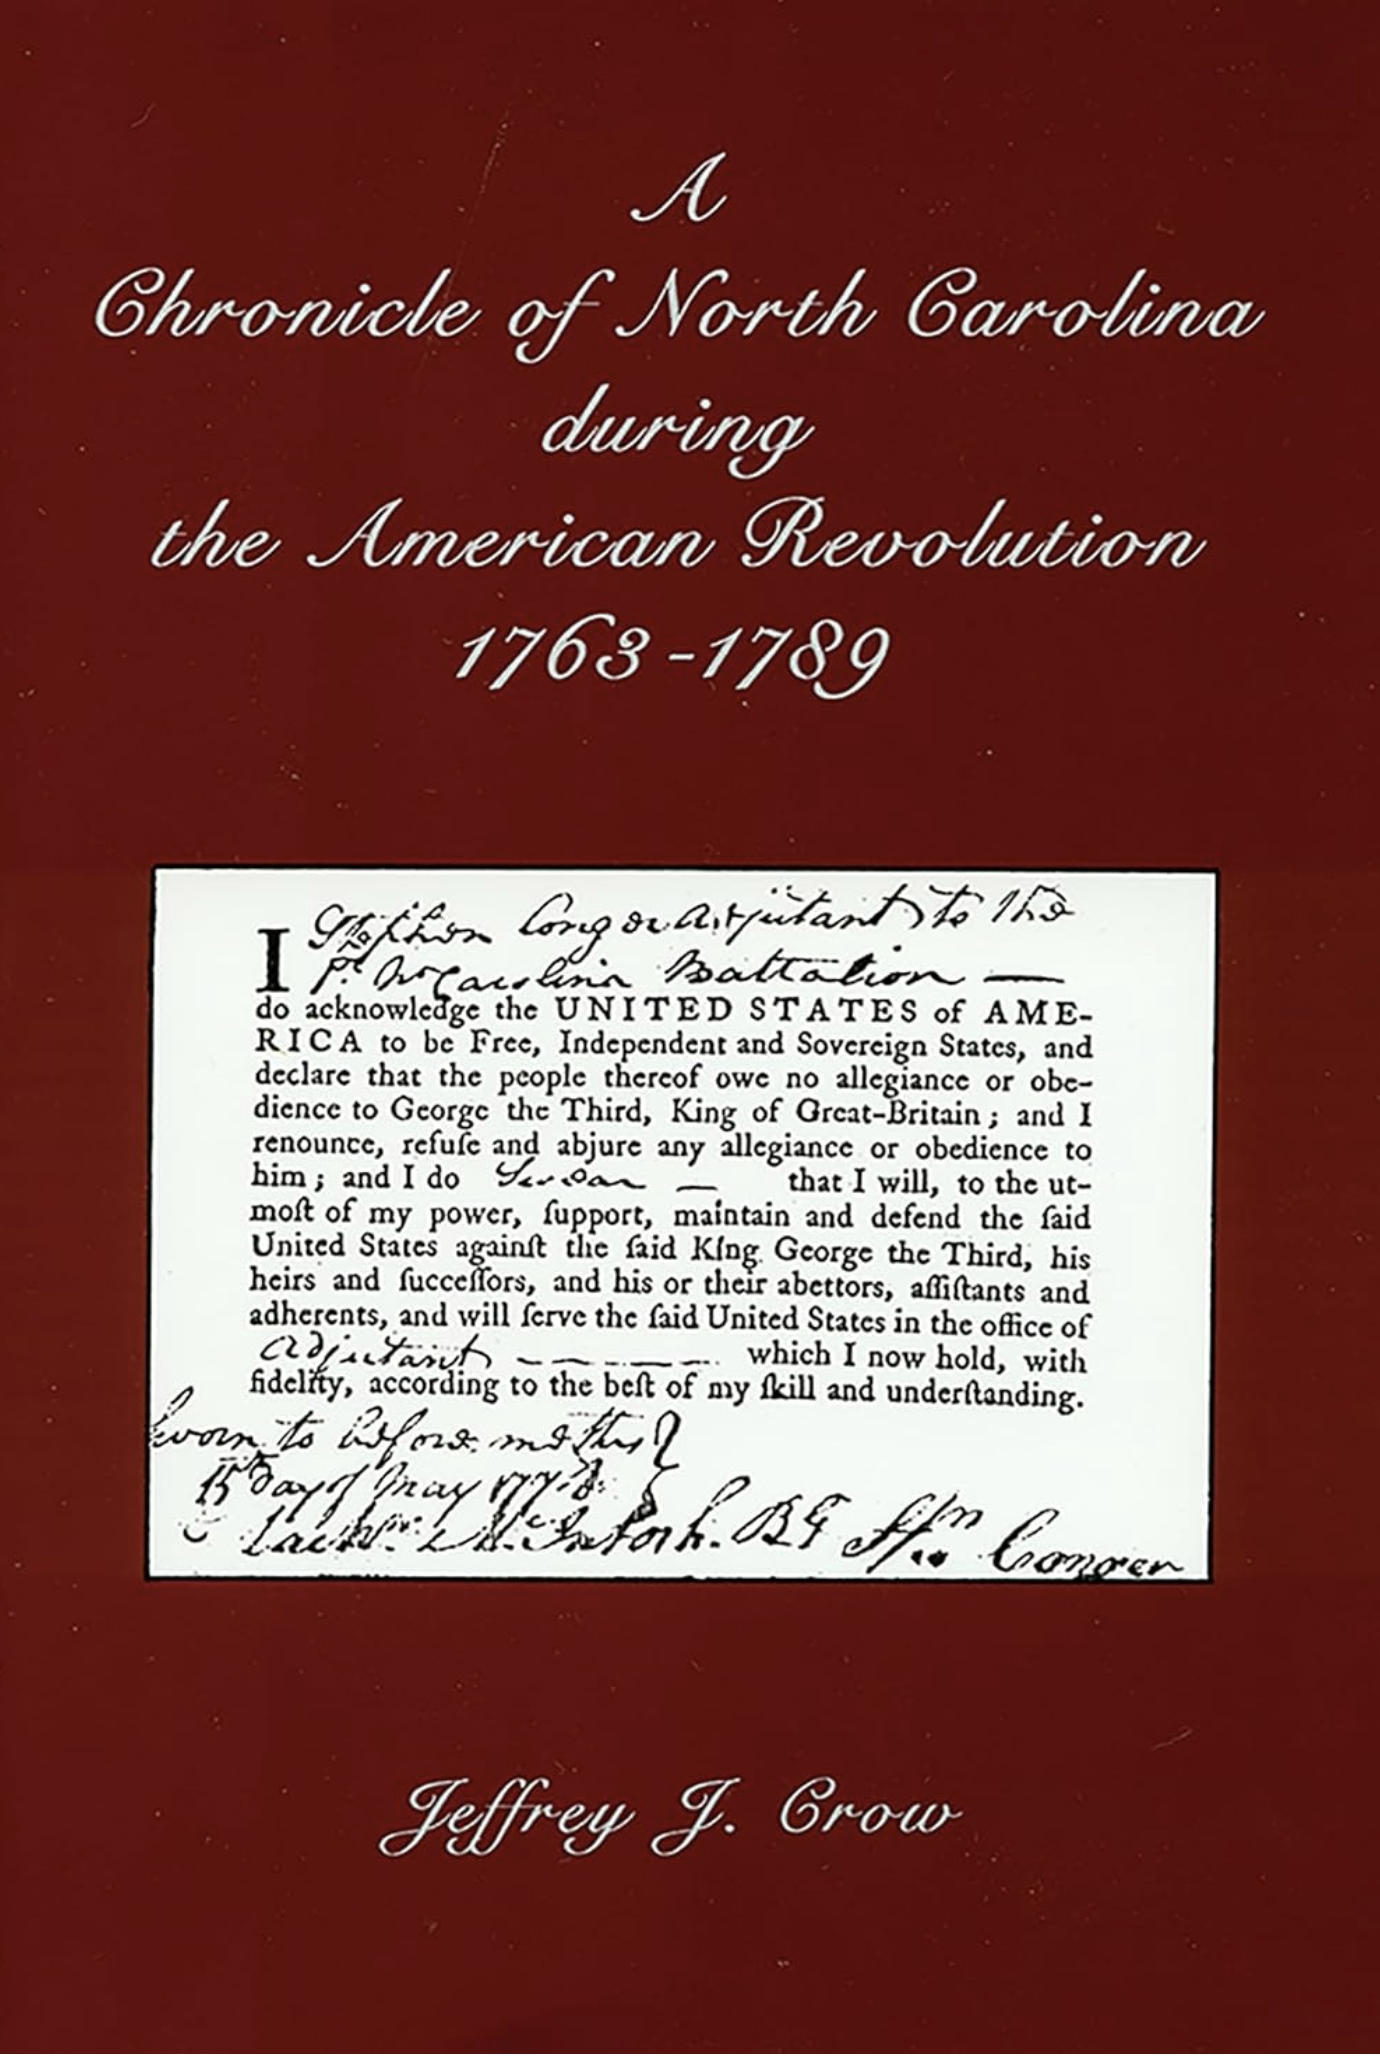 A
Chronicle of North Carolina
during
the American Revolution
1763-1789
I Stephen Conger adjutant to the
Pt. No Carolina Battalion —
do acknowledge the UNITED STATES of AME-
RICA to be Free, Independent and Sovereign States, and
declare that the people thereof owe no allegiance or obe-
dience to George the Third, King of Great-Britain; and I
renounce, refuſe and abjure any allegiance or obedience to
him; and I do Swear — that I will, to the ut-
moſt of my power, ſupport, maintain and defend the ſaid
United States againſt the ſaid King George the Third, his
heirs and ſucceſſors, and his or their abettors, aſſiſtants and
adherents, and will ſerve the ſaid United States in the office of
Adjutant — — — — which I now hold, with
fidelity, according to the beſt of my ſkill and underſtanding.
Sworn to before me this
15th Day of May 1778
Lachn. McIntosh. BG Stn Conger
Jeffrey J. Crow